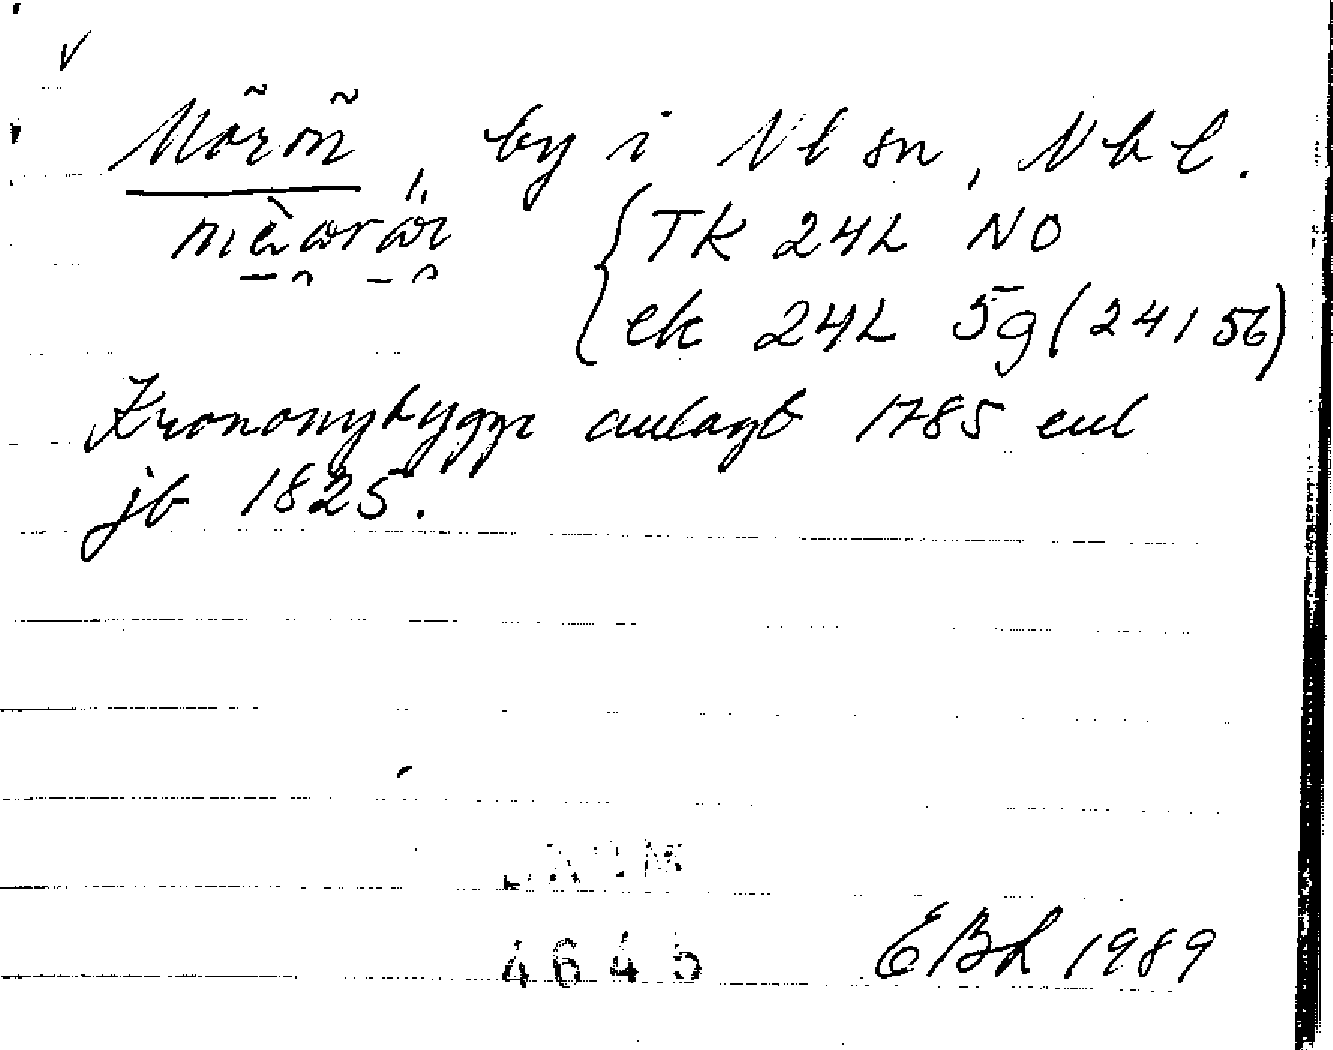 Mörön, by i Nl sn, Nbl.
TK 24L NO
ek 24L 5g (24156)
Krononybygge anlagt 1785 enl
jb 1825.
4645
EBL 1989